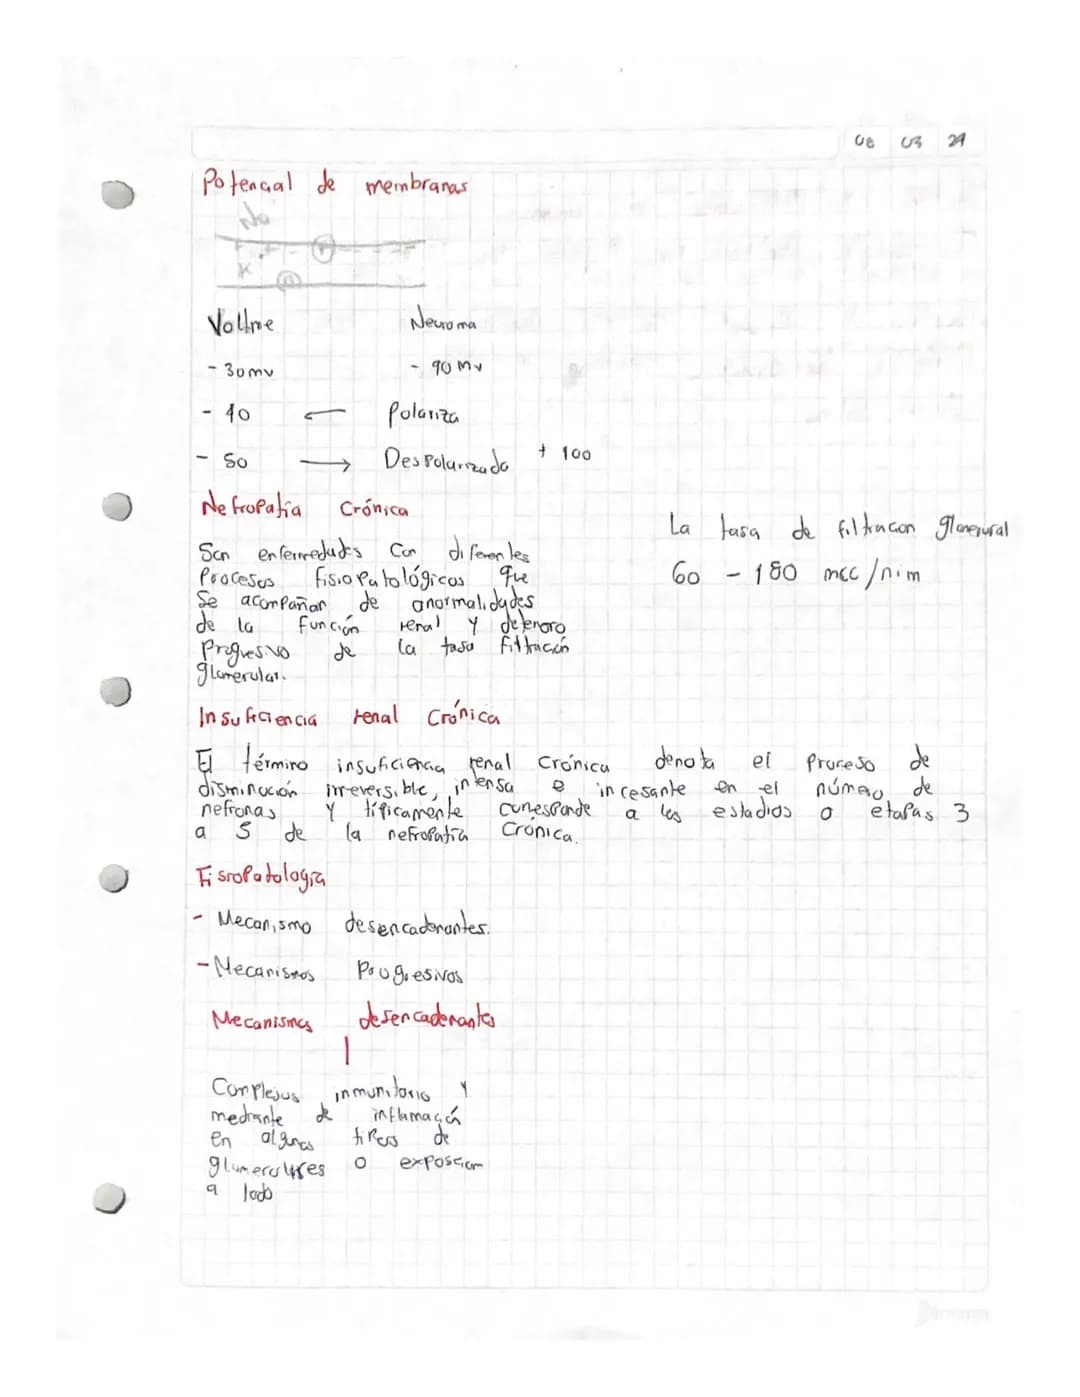 08 03 24
Potencial de membranas
Na
K
Voltme Neuroma
- 30mv - 90 mv
- 40 ← Polariza
- 50 → Despolarizado + 100
Nefropatía Crónica
La tasa de filtracion glomerural
60 - 180 mcc/nim
Son enfermedades Con diferentes
Procesos fisiopatológicos que
Se acompañan de anormalidades
de la función renal y deterioro
Progresivo de la tasa filtración
glomerular.
Insuficiencia renal Crónica
El término insuficiencia renal Crónica denota el Proceso de
disminución irreversible, intensa e incesante en el número de
nefronas y típicamente corresponde a los estadios o etapas 3
a 5 de la nefropatía Crónica.
Fisiopatología
- Mecanismo desencadenantes.
- Mecanismos Progresivos
Mecanismos desencadenantes
Complejos inmunitorio y
mediante de inflamación
en algunos tipos de
o exposcion
a